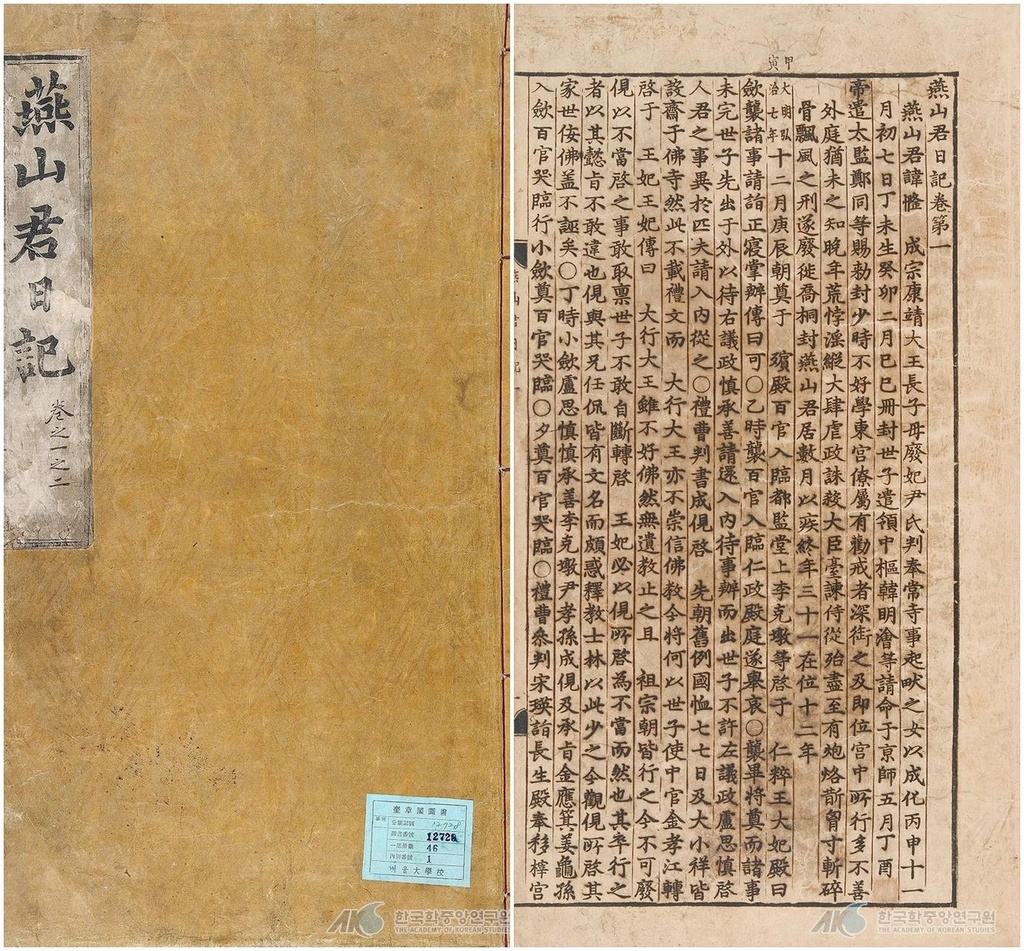 燕山君日記
卷之一之二
奎章閣圖書
分類記號
圖書番號 12728
一部冊數 46
內別番號 1
서울大學校
甲寅
燕山君日記卷第一
燕山君諱㦕 成宗康靖大王長子母廢妃尹氏判奉常寺事起畎之女以成化丙申十一
月初七日丁未生癸卯二月己巳冊封世子遣領中樞韓明澮等請命于京師五月丁酉
帝遣太監鄭同等賜勅封少時不好學東宮僚屬有勸戒者深銜之及即位宮中所行多不善
外庭猶未之知晚年荒悖淫縱大肆虐政誅殺大臣臺諫侍從殆盡至有炮烙斮胷寸斬碎
骨飄風之刑遂廢徙喬桐封燕山君居數月以疾終年三十一在位十二年
大明弘治七年十二月庚辰朝奠于 殯殿百官入臨都監堂上李克墩等啓于 仁粹王大妃殿曰
歛襲諸事請詣正寢掌辦傳曰可○乙時襲百官入臨仁政殿庭遂舉哀○襲畢將奠而諸事
未完世子先出于外以待右議政慎承善請還入內待事辦而出世子不許左議政盧思慎啓
人君之事異於匹夫請入內從之○禮曹判書成俔啓 先朝舊例國恤七七日及大小祥皆
設齋于佛寺然此不載禮文而 大行大王亦不崇信佛敎今將何以世子使中官金孝江轉
啓于 王妃王妃傳曰 大行大王雖不好佛然無遺敎止之且 祖宗朝皆行之今不可廢
俔以不當啓之事敢取禀世子不敢自斷轉啓 王妃必以俔所啓為不當而然也其卒行之
者以其懿旨不敢違也俔與其兄任侃皆有文名而頗惑釋敎士林以此少之今觀俔所啓其
家世侫佛盖不誣矣○丁時小歛盧思慎慎承善李克墩尹孝孫成俔及承旨金應箕姜龜孫
入歛百官哭臨行小歛奠百官哭臨○夕奠百官哭臨○禮曹叅判宋瑛詣長生殿奉移梓宮
한국학중앙연구원
THE ACADEMY OF KOREAN STUDIES
한국학중앙연구원
THE ACADEMY OF KOREAN STUDIES